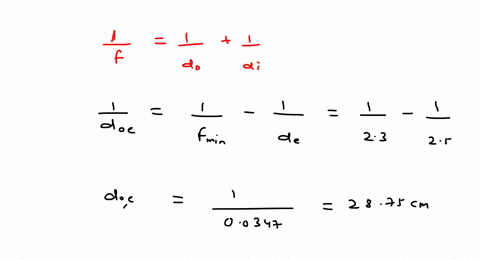 1/f = 1/do + 1/di
1/doe = 1/fmin - 1/de = 1/2.3 - 1/2.5
do,e = 1/0.0347 = 28.75 cm